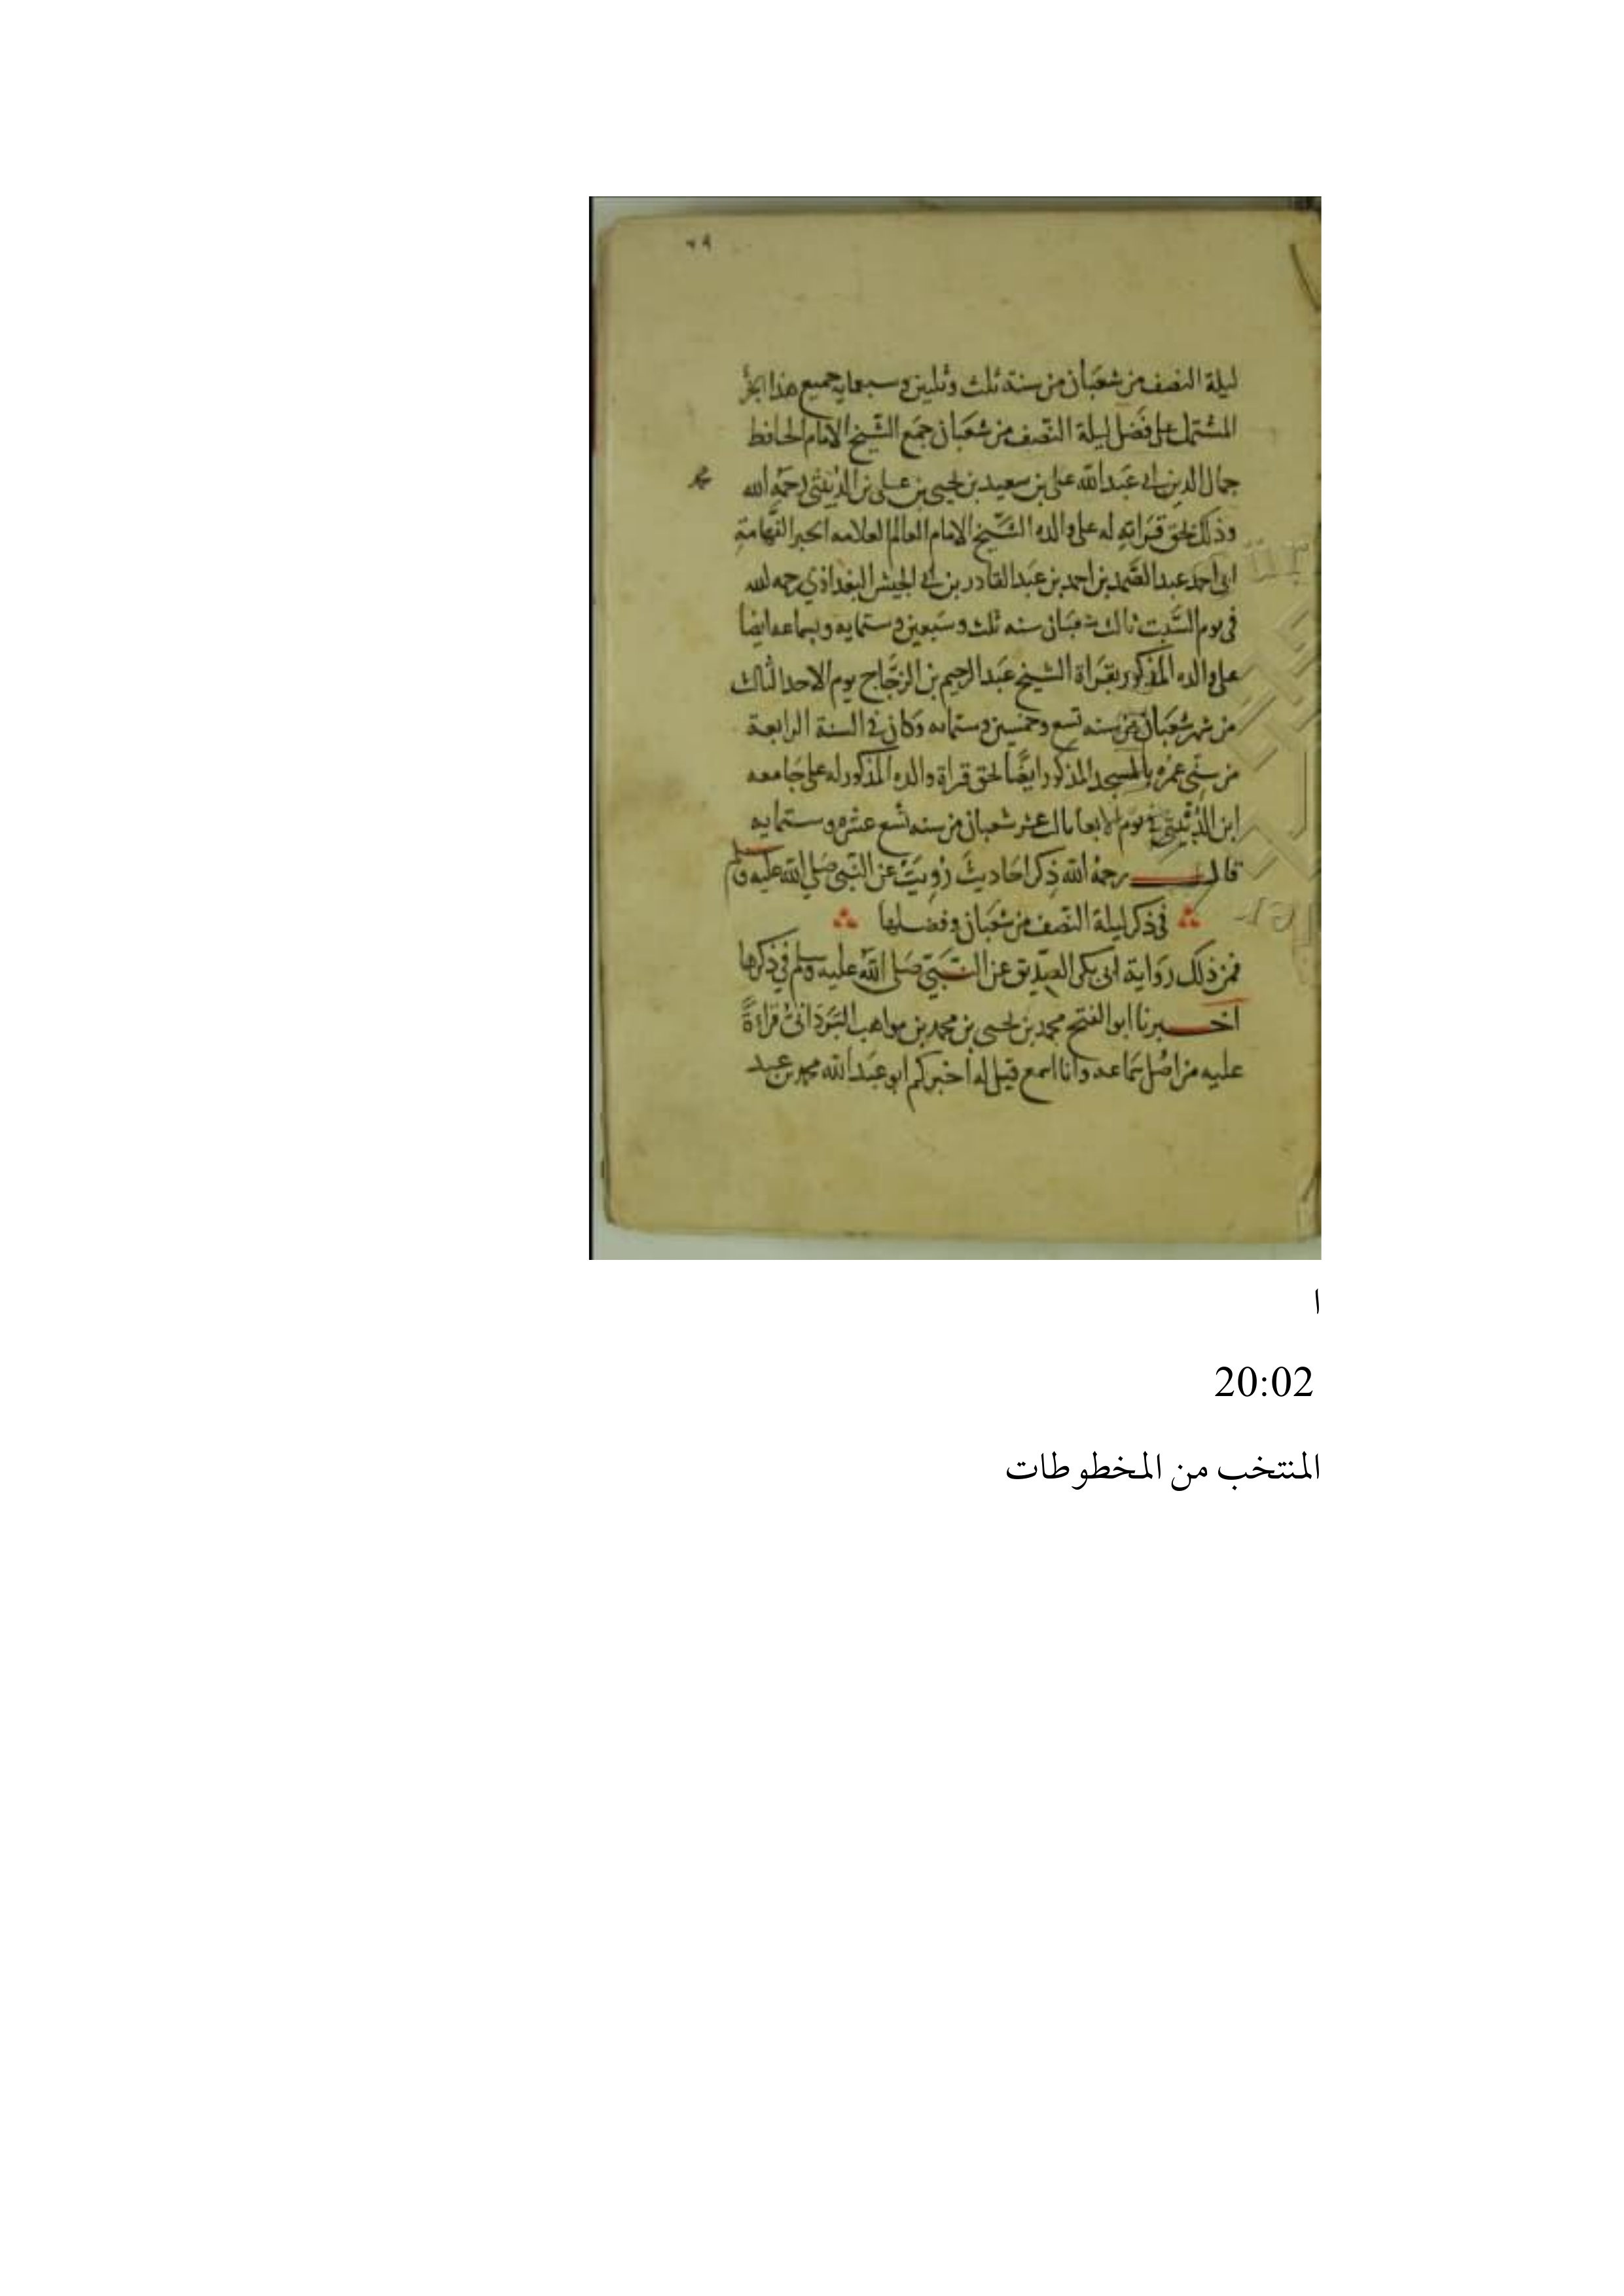 ٦٩
ليلة النصف من شعبان من سنة ثلث وثلثين وسبعمايه جميع هذا الجزء
المشتمل على فضل ليلة النصف من شعبان جمع الشيخ الامام الحافظ
جمال الدين ابى عبد الله على بن سعيد بن يحيى بن على بن الدبيثى رحمه الله
محمد
وذلك بحق قراته له على والده الشيخ الامام العالم العلامه الحبر الفهامة
ابى احمد عبد الصمد بن احمد بن عبد القادر بن ابى الجيش البغدادي رحمه الله
فى يوم السبت ثالث شعبان سنه ثلث وسبعين وستمايه وبسماعه ايضا
على والده المذكور بقراة الشيخ عبد الرحيم بن الزجاج يوم الاحد الثالث
من شهر شعبان من سنه تسع وخمسين وستمايه وكان فى السنة الرابعة
من سنى عمره بالمسجد المذكور ايضا بحق قراة والده المذكور له على جامعه
ابن الدبيثى فى يوم الاربعا ثالث عشر شعبان من سنه تسع عشره وستمايه
قال رحمه الله ذكر احاديث رويت عن النبى صلى الله عليه وسلم
فى ذكر ليلة النصف من شعبان وفضلها
فمن ذلك رواية ابى بكر الصديق عن النبي صلى الله عليه وسلم في ذكرها
اخبرنا ابو الفتح محمد بن يحيى بن محمد بن مواهب البرداني قراءة
عليه من اصل سماعه وانا اسمع قيل له اخبركم ابو عبد الله محمد بن عبد
ا
20:02
المنتخب من المخطوطات